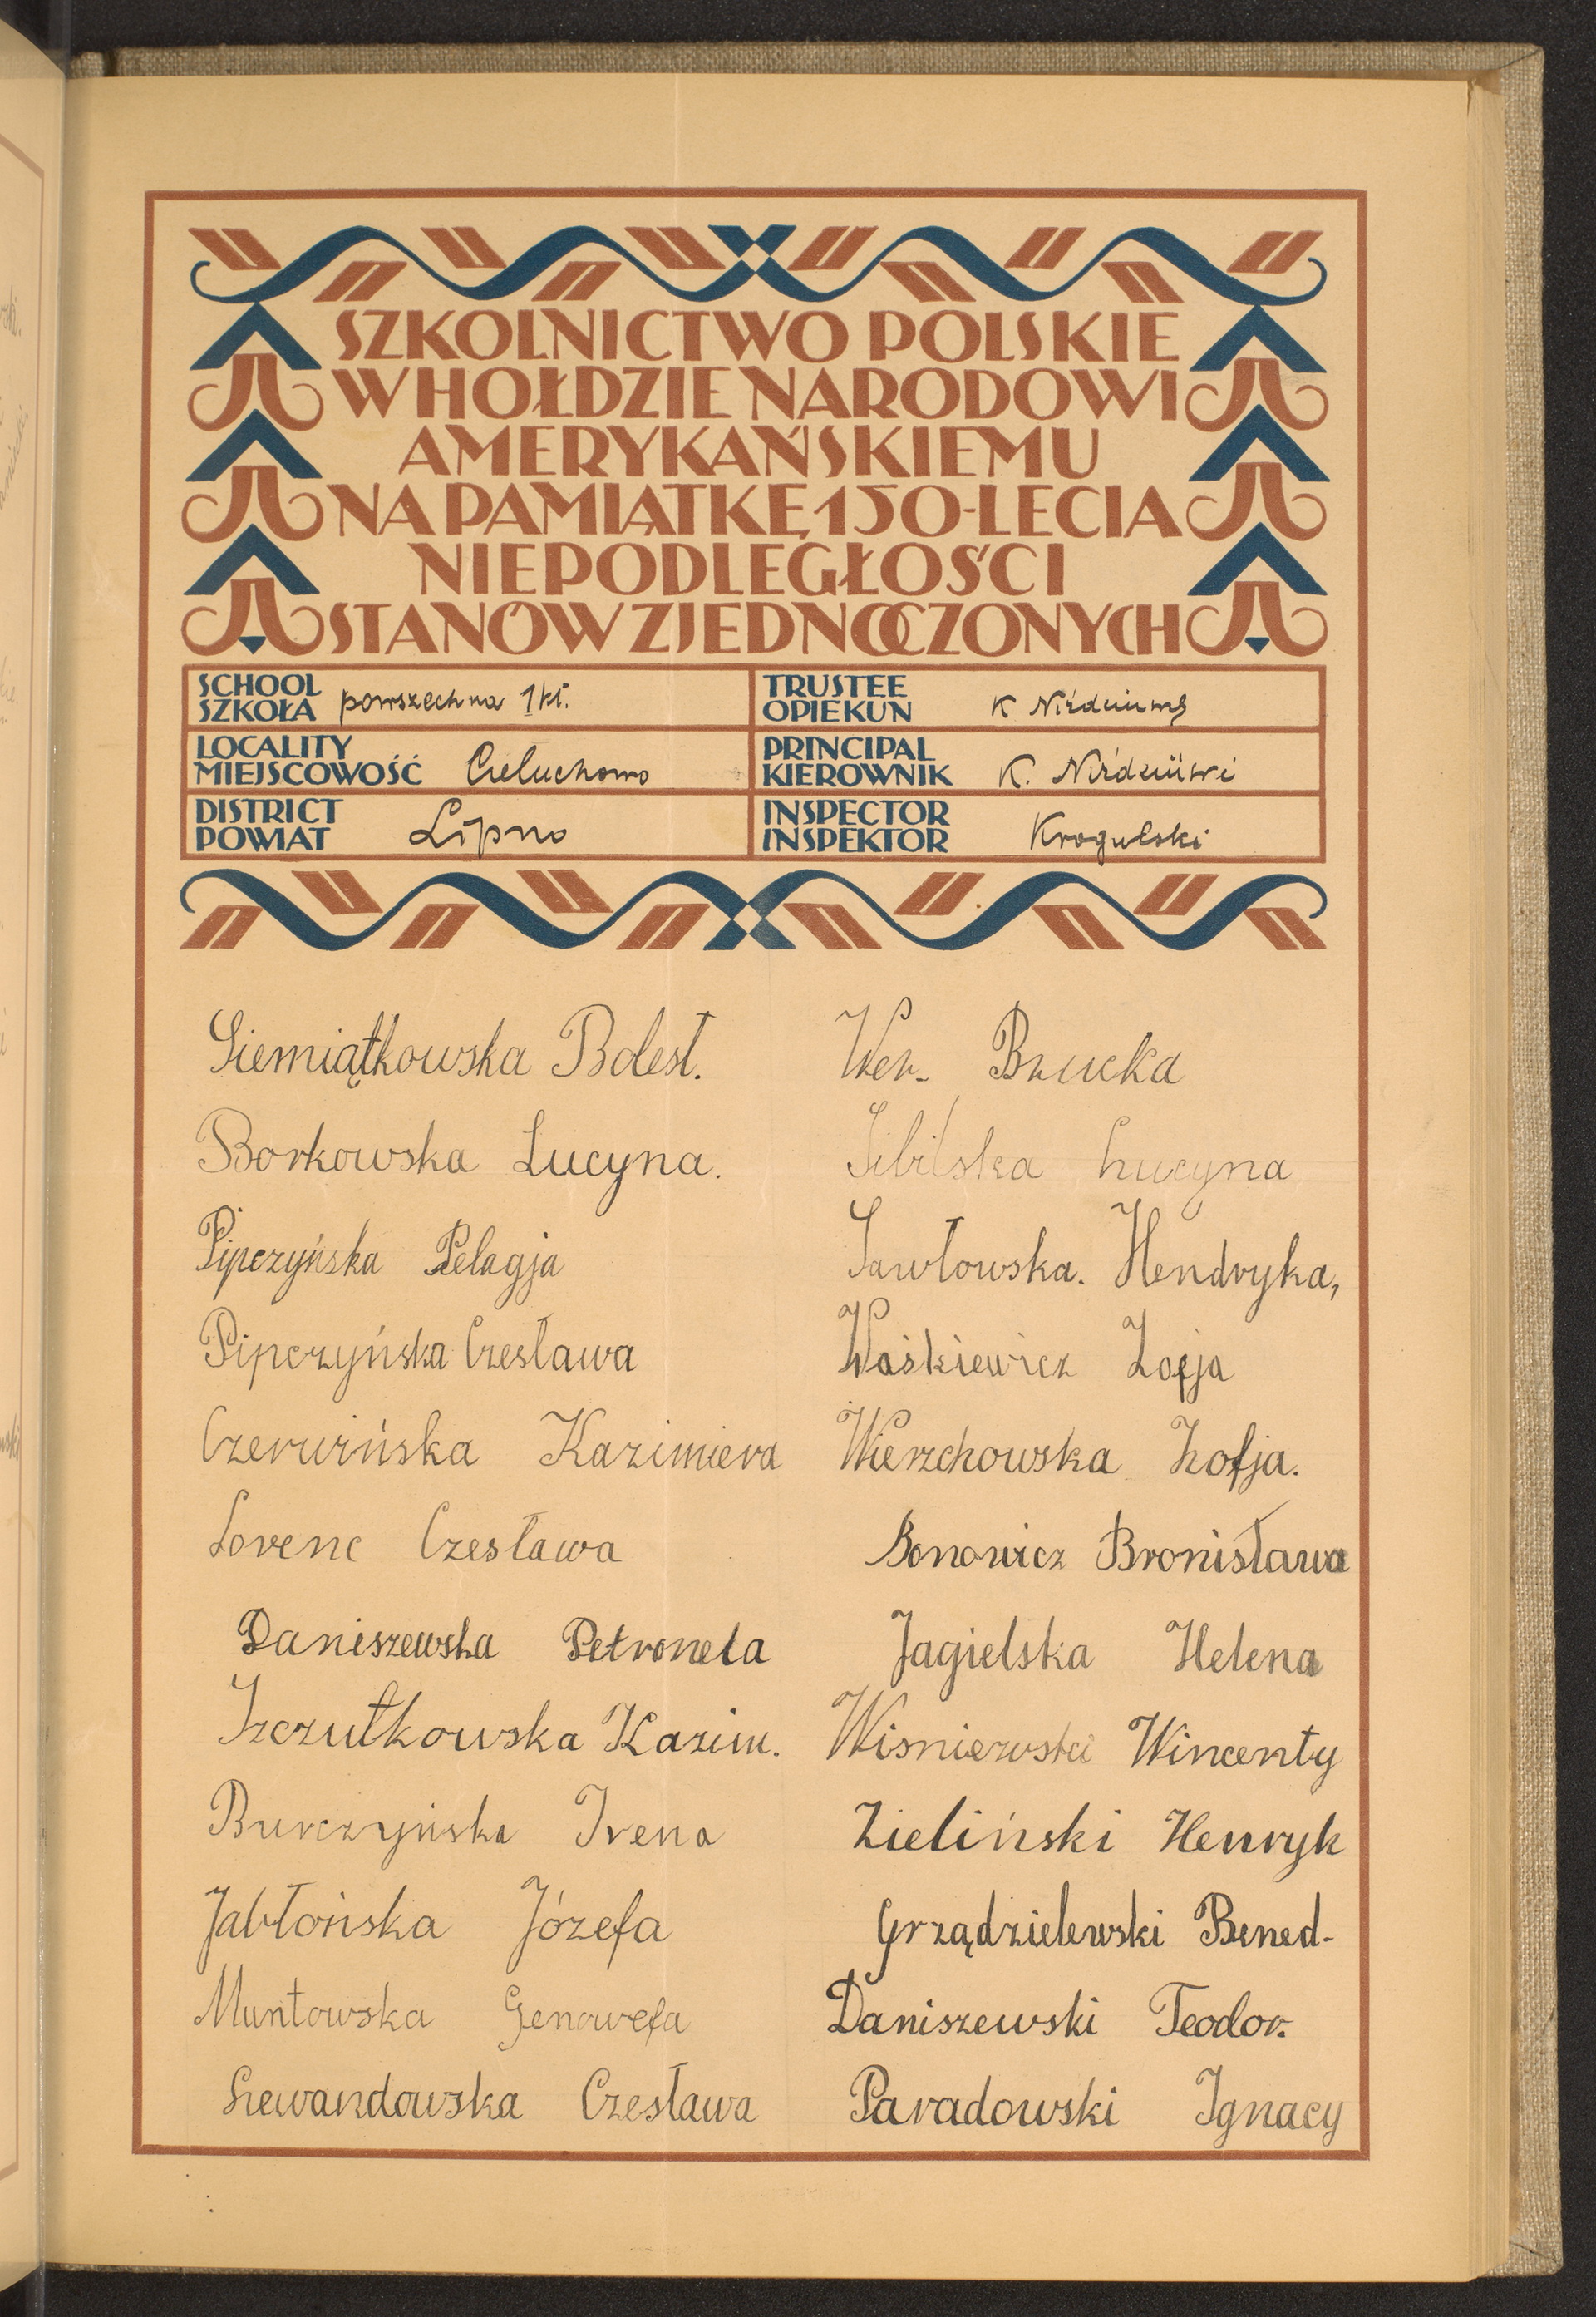 SZKOLNICTWO POLSKIE
W HOŁDZIE NARODOWI
AMERYKAŃSKIEMU
NA PAMIĄTKĘ 150-LECIA
NIEPODLEGŁOŚCI
STANÓW ZJEDNOCZONYCH
SCHOOL
SZKOŁA powszechna 1 kl.
TRUSTEE
OPIEKUN K
LOCALITY
MIEJSCOWOŚĆ Cieluchowo
PRINCIPAL
KIEROWNIK K.
DISTRICT
POWIAT Lipno
INSPECTOR
INSPEKTOR Krogulski
Siemiątkowska Bolesł.
Borkowska Lucyna.
Pipczyńska Pelagja
Pipczyńska Czesława
Czerwińska Kazimiera
Lorenc Czesława
Daniszewska Petronela
Szczutkowska Kazim.
Burczyńska Irena
Jabłońska Józefa
Muntowska Genowefa
Lewandowska Czesława
Wer. Brucka
Sibilska Lucyna
Sawłowska. Hendryka,
Waśkiewicz Zofja
Wierzchowska Zofja.
Bonowicz Bronisława
Jagielska Helena
Wisniewski Wincenty
Zieliński Henryk
Grządzielewski Bened-
Daniszewski Teodor.
Paradowski Ignacy